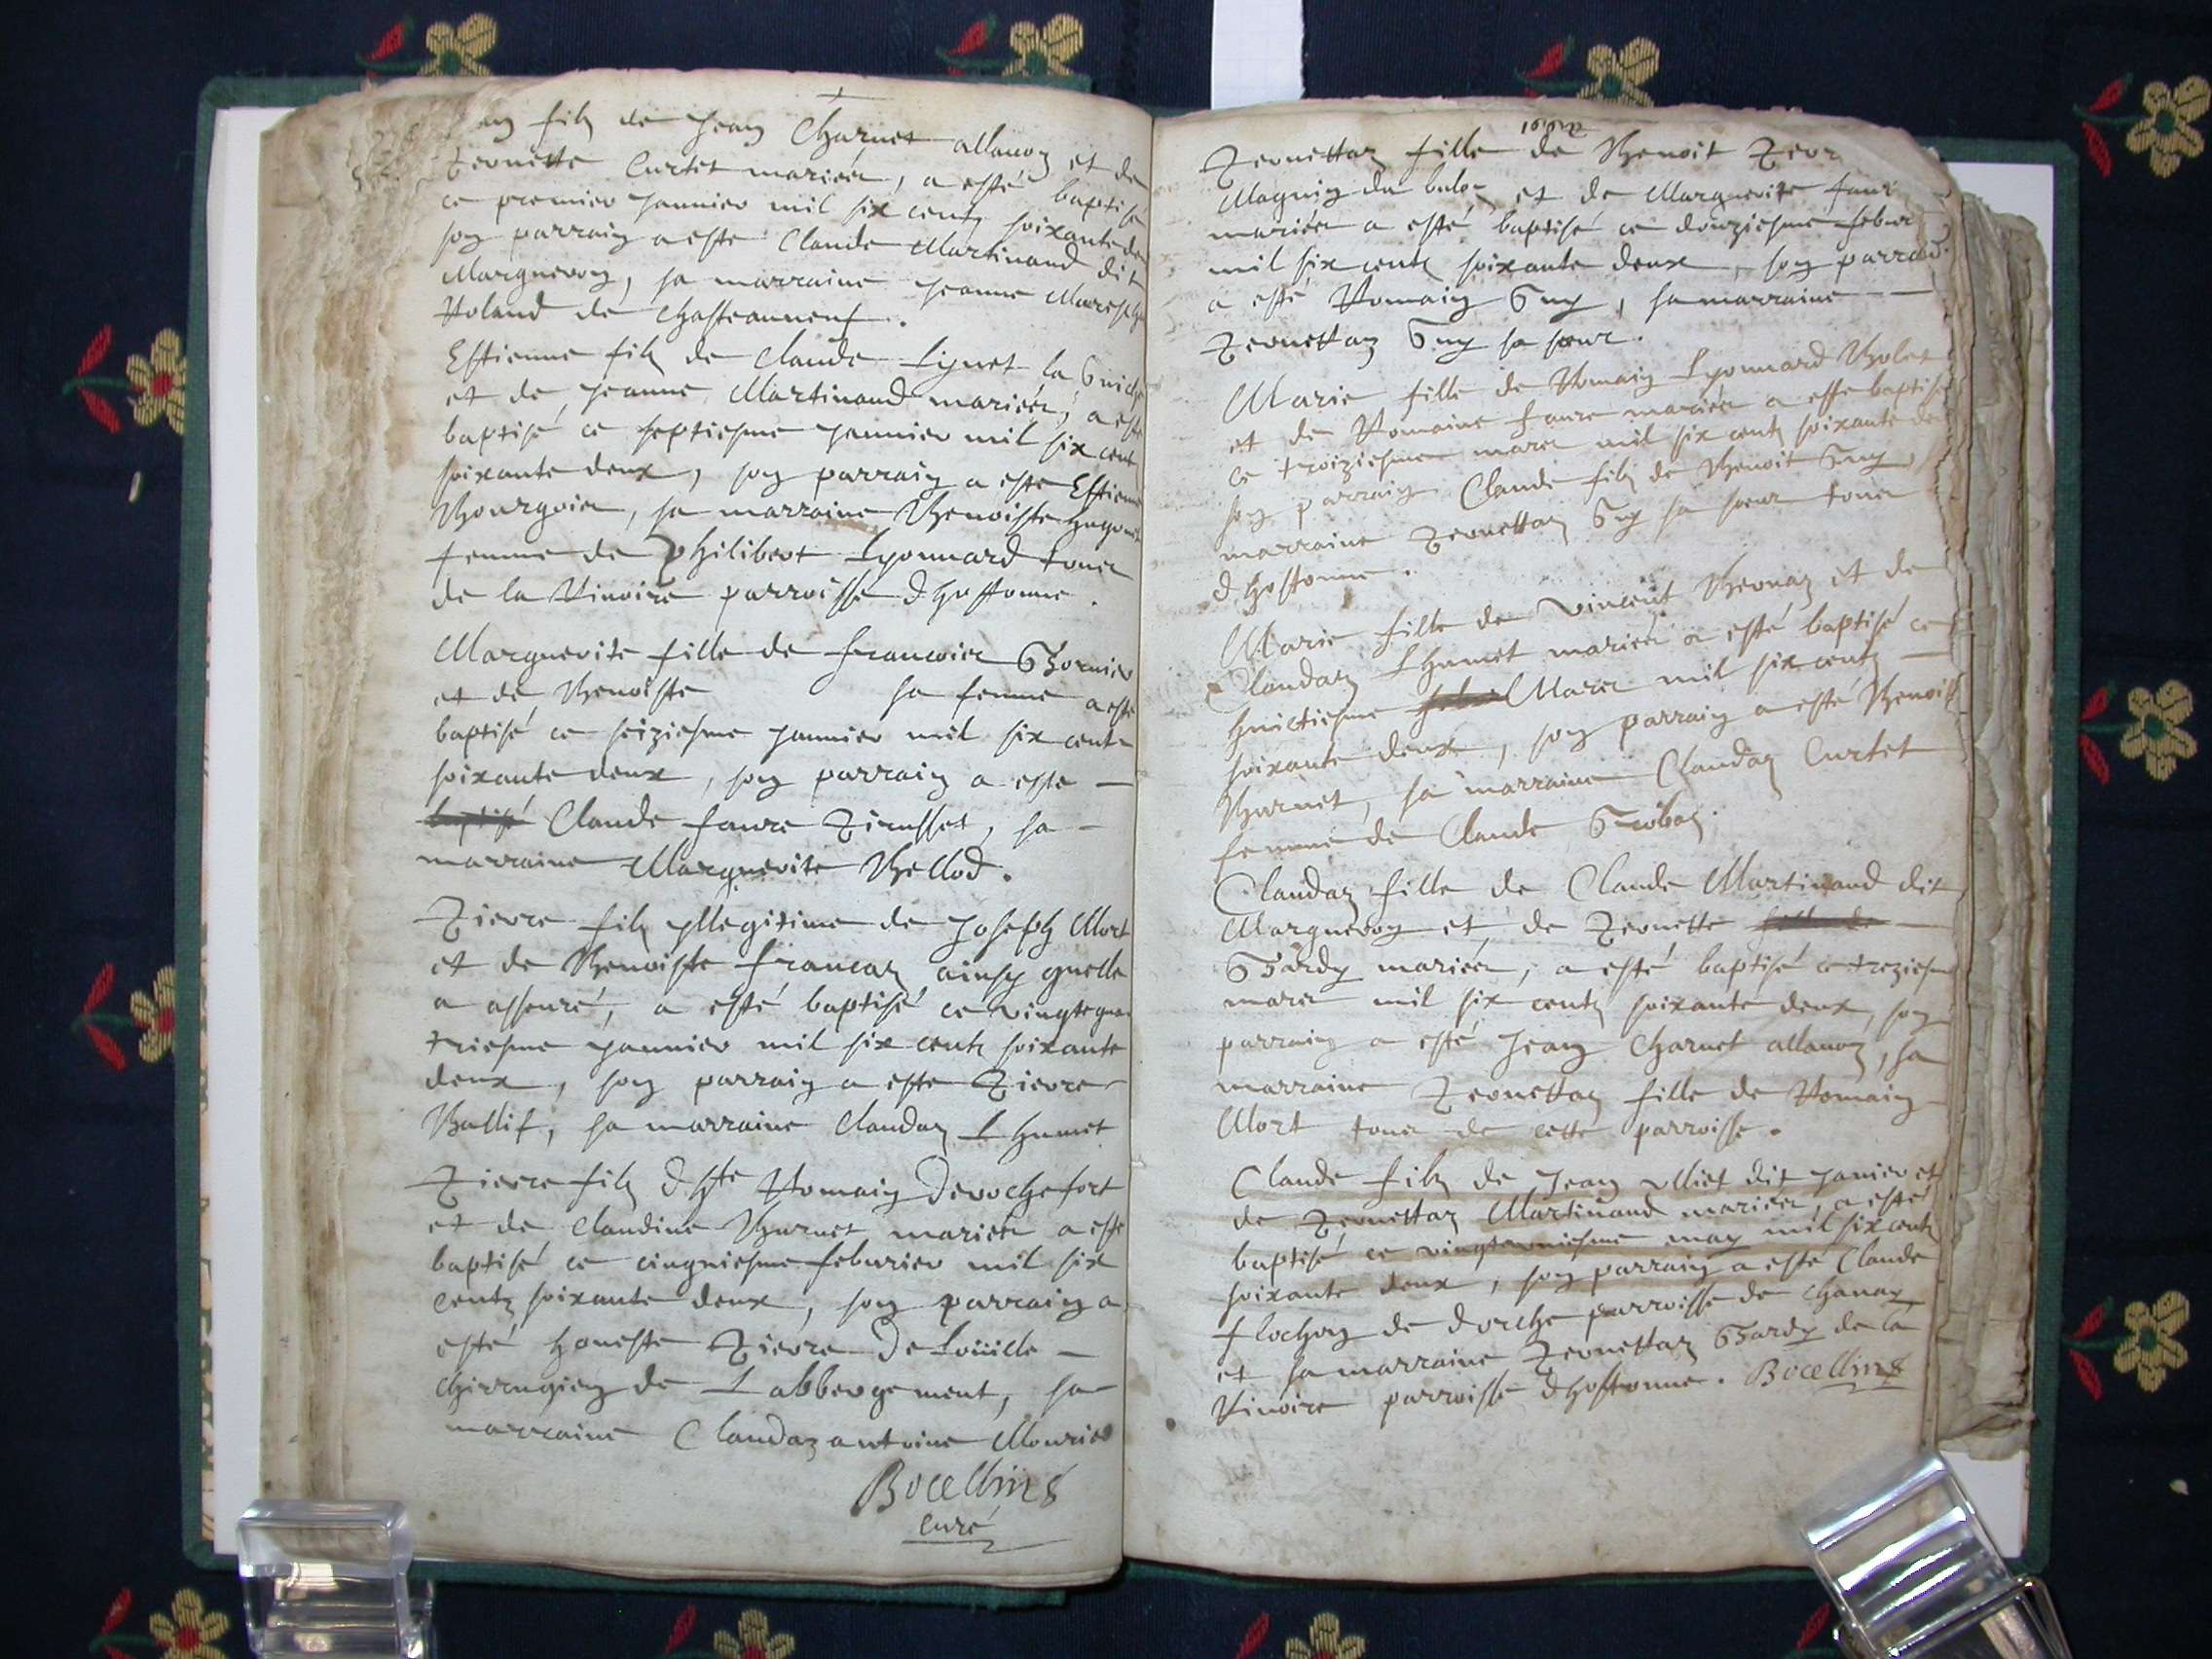 Jean filz de Jean Charnet allauoz et de
Pernette Curtet mariéés, a esté baptisé
ce premier januier mil six centz soixante deu
son parrain a esté Claude Martinand dit
Margueron, sa marraine Jeanne
Roland de Chasteauneuf.
Estienne filz de Claude Lynet la
et de Jeanne Martinand mariéés, a esté
baptisé ce septiesme januier mil six cent
soixante deux, son parrain a esté Estienne
Bourgois, sa marraine Benoiste Hugonet
femme de Philibert Lyonnard tous
de la Riuoire parroisse d'hostonne.
Marguerite fille de francois Thornier
et de Benoiste sa femme a esté
baptisé ce seiziesme januier mil six centz
soixante deux, son parrain a esté —
baptisé Claude faure Pirasset, sa —
marraine Marguerite Bellod.
Pierre filz yllegitime de Joseph Mort
et de Benoiste francaz ainsy quelle
a asseuré, a esté baptisé ce vingtequa
triesme januier mil six centz soixante
deux, son parrain a esté Pierre
Ballif, sa marraine Claudaz Lhumet
Pierre filz d'hste Romain Derochefort
et de Claudine Burnet mariéés a esté
baptisé ce cinquiesme feburier mil six
centz soixante deux, son parrain a
esté honeste Pierre De Loüille —
chirrugien de Labbergement, sa
marraine Claudaz antoine Mourier
Bocellins
curé
1662
Pernettaz fille de Benoit
Magnin du et de Marguerite faur
mariéés a esté baptisé ce douziesme febur
mil six centz soixante deux, son parrain
a esté Romain Guy, sa marraine —
Pernettaz Guy sa sœur.
Marie fille de Romain Lyonnard Bolet
et de Romaine faure mariéés a esté baptisé
ce troiziesme mars mil six centz soixante deu
son parrain Claude filz de Benoit Guy,
marraine Pernettaz Guy sa sœur tous
d'hostonne.
Marie fille de vincent Bernaz et de
Claudaz Lhumet mariéés a esté baptisé ce
huictiesme Mars mil six centz —
soixante deux, son parrain a esté Benoist
Burnet, sa marraine Claudaz Curtet
femme de Claude Grobaz.
Claudaz fille de Claude Martinand dit
Margueron et de Pernette fille de —
Tardy mariéés, a esté baptisé ce treziesm
mars mil six centz soixante deux, son
parrain a esté Jean Charnet allauoz, sa
marraine Pernettaz fille de Romain
Mort tous de cette parroisse.
Claude filz de Jean Miet dit Janier et
de Pernettaz Martinand mariéés, a esté
baptisé ce vingtevniesme may mil six centz
soixante deux, son parrain a esté Claude
flochon de dorche parroisse de Chanay
et sa marraine Pernettaz Tardy de la
Riuoire parroisse d'hostonne. Bocellins